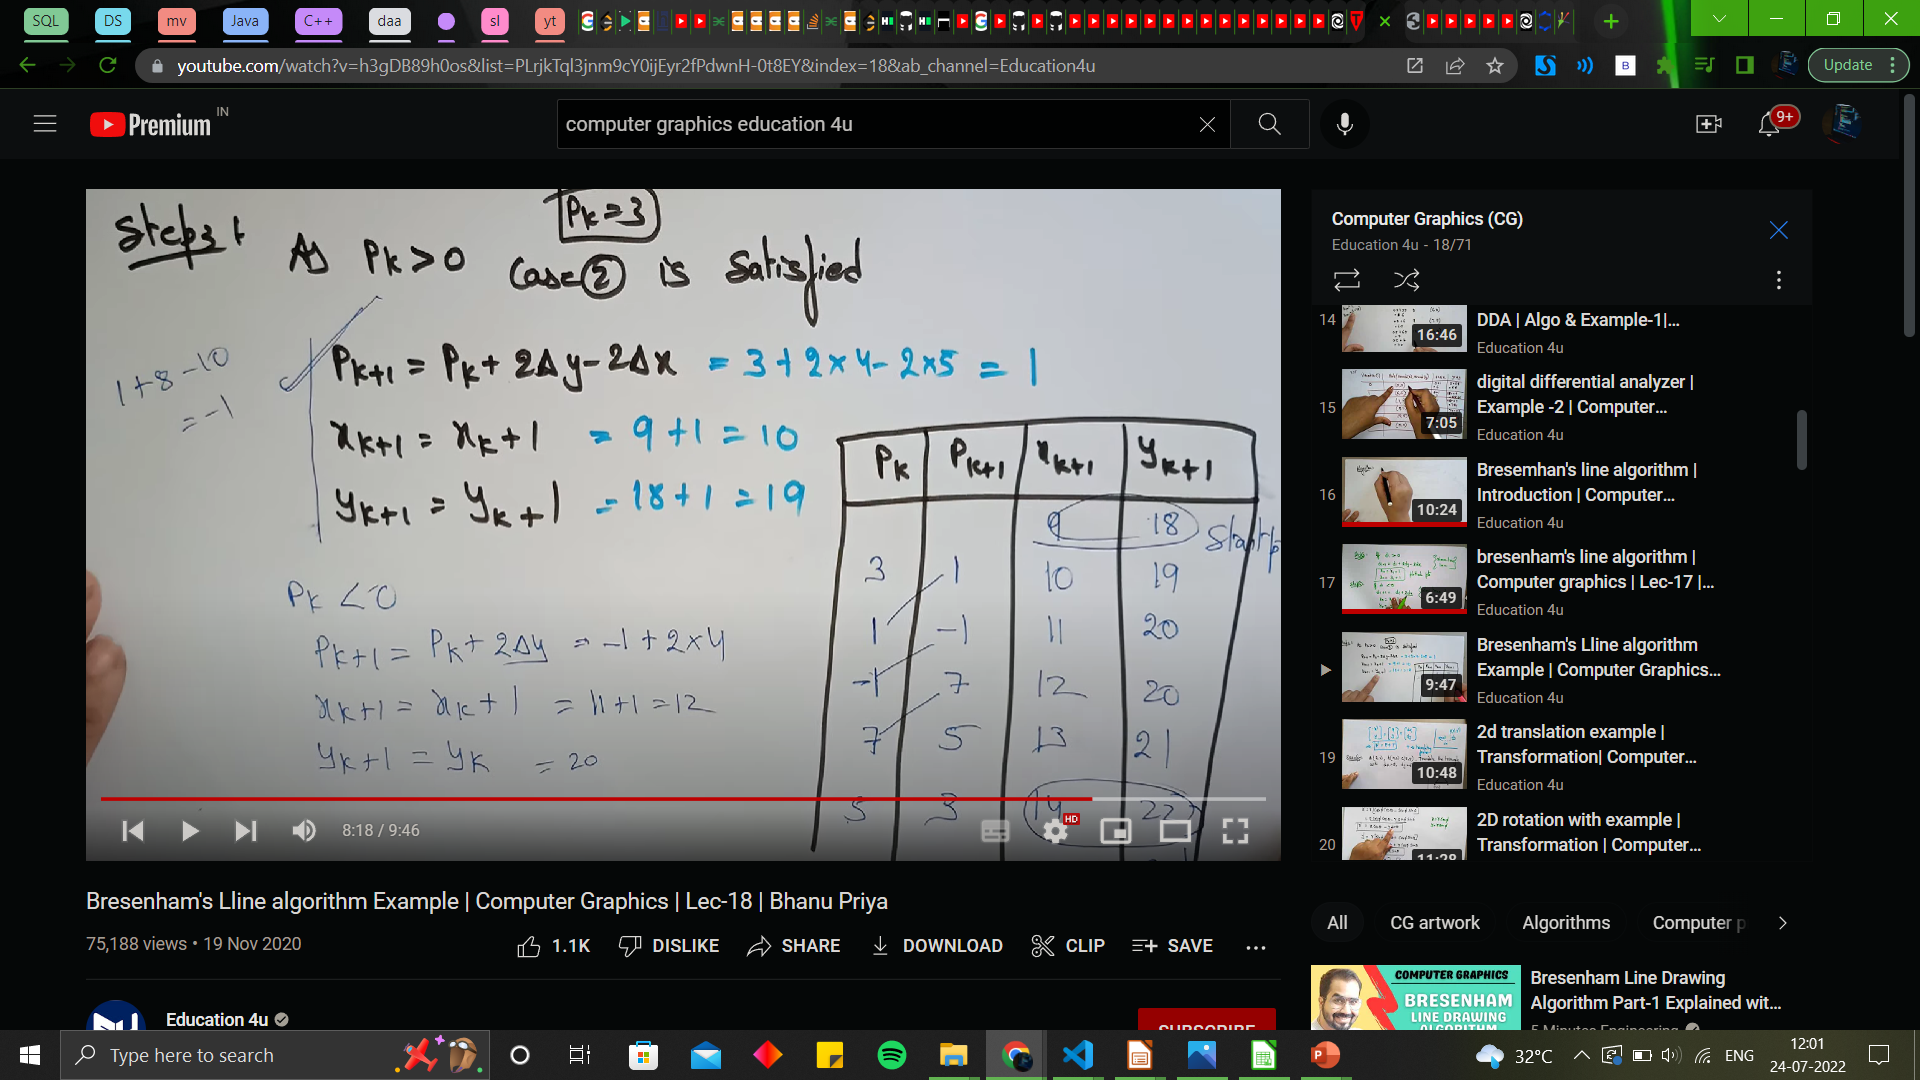 SQL DS mv Java C++ daa sl yt
youtube.com/watch?v=h3gDB89h0os&list=PLrjkTql3jnm9cY0ijEyr2fPdwnH-0t8EY&index=18&ab_channel=Education4u
Update
Premium IN
computer graphics education 4u
9+
Pk=3
Step3:
As Pk>0 Case ② is Satisfied
Pk+1 = Pk + 2Δy-2Δx = 3+2×4-2×5 = 1
1+8-10
= -1
xk+1 = xk+1 = 9+1 = 10
yk+1 = yk+1 = 18+1 = 19
Pk Pk+1 xk+1 yk+1
9 18
3 1 10 19
1 -1 11 20
-1 7 12 20
7 5 13 21
5 3 14 22
Pk <0
Pk+1 = Pk+ 2Δy = -1+2×4
xk+1 = xk+1 = 11+1 = 12
yk+1 = yk = 20
HD
8:18 / 9:46
Bresenham's Lline algorithm Example | Computer Graphics | Lec-18 | Bhanu Priya
75,188 views • 19 Nov 2020
1.1K DISLIKE SHARE DOWNLOAD CLIP SAVE ...
Education 4u
SUBSCRIBE
Computer Graphics (CG)
Education 4u - 18/71
14
16:46
DDA | Algo & Example-1|...
Education 4u
15
7:05
digital differential analyzer |
Example -2 | Computer...
Education 4u
16
10:24
Bresemhan's line algorithm |
Introduction | Computer...
Education 4u
17
6:49
bresenham's line algorithm |
Computer graphics | Lec-17 |...
Education 4u
9:47
Bresenham's Lline algorithm
Example | Computer Graphics...
Education 4u
19
10:48
2d translation example |
Transformation| Computer...
Education 4u
20
11:28
2D rotation with example |
Transformation | Computer...
All CG artwork Algorithms Computer p
COMPUTER GRAPHICS
BRESENHAM
LINE DRAWING
ALGORITHM
Bresenham Line Drawing
Algorithm Part-1 Explained wit...
5 Minutes Engineering
Type here to search
32°C ENG
12:01
24-07-2022